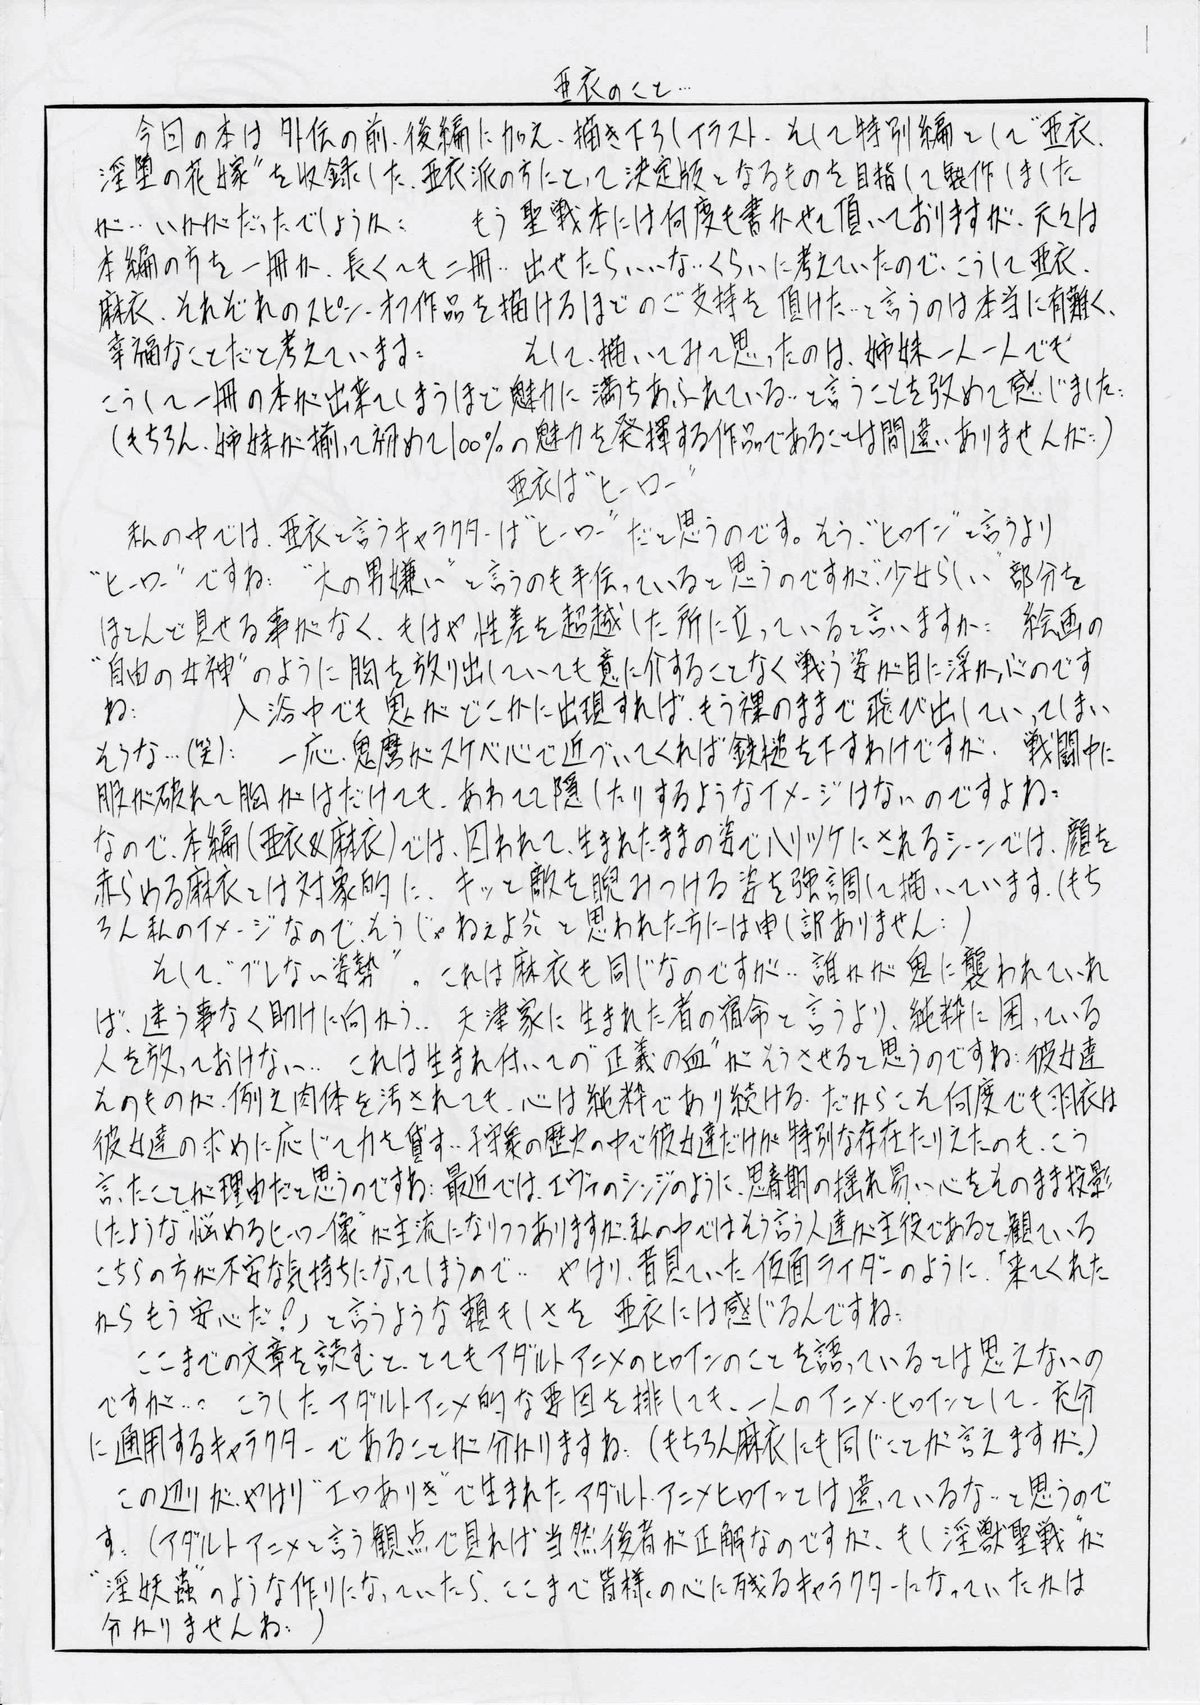 亜衣のこと…
今回の本は外伝の前、後編に加え、描き下ろしイラスト、そして特別編として"亜衣、
淫堕の花嫁"を収録した、亜衣派の方にとって決定版となるものを目指して製作しました
が…いかがだったでしょうか… もう聖戦本には何度も書かせて頂いておりますが、元々は
本編の方を一冊か、長くても二冊…出せたらいいな…くらいに考えていたので、こうして亜衣、
麻衣、それぞれのスピン・オフ作品を描けるほどのご支持を頂けた…と言うのは本当に有難く、
幸福なことだと考えています… そして、描いてみて思ったのは、姉妹一人一人でも
こうして一冊の本が出来てしまうほど魅力に満ちあふれている…と言うことを改めて感じました…
(もちろん、姉妹が揃って初めて100%の魅力を発揮する作品であることは間違いありませんが…)
亜衣は"ヒーロー"
私の中では、亜衣と言うキャラクターは"ヒーロー"だと思うのです。そう、"ヒロイン"と言うより
"ヒーロー"ですね… "大の男嫌い"と言うのも手伝っていると思うのですが、"少女らしい"部分を
ほとんど見せる事がなく、もはや性差を超越した所に立っていると言いますか… 絵画の
"自由の女神"のように胸を放り出していても意に介することなく戦う姿が目に浮かぶのです
ね… 入浴中でも鬼がどこかに出現すれば、もう裸のままで飛び出していってしまい
そうな…(笑)… 一応、鬼麿がスケベ心で近づいてくれば鉄槌を下すわけですが、戦闘中に
服が破れて胸がはだけても、あわてて隠したりするようなイメージはないのですよね…
なので、本編(亜衣&麻衣)では、囚われて、生まれたままの姿でハリツケにされるシーンでは、顔を
赤らめる麻衣とは対象的に、キッと敵を睨みつける姿を強調して描いています。(もち
ろん私のイメージなので、そうじゃねぇよ!と思われた方には申し訳ありません…)
そして"ブレない姿勢"。これは麻衣も同じなのですが…誰かが鬼に襲われていれ
ば、迷う事なく助けに向かう… 天津家に生まれた者の宿命と言うより、純粋に困っている
人を放っておけない… これは生まれ付いての"正義の血"がそうさせると思うのですね…彼女達
そのものが、例え肉体を汚されても、心は純粋であり続ける、だからこそ何度でも羽衣は
彼女達の求めに応じて力を貸す…子守衆の歴史の中で彼女達だけが特別な存在たりえたのも、こう
言ったことが理由だと思うのですね…最近では、エヴァのシンジのように、思春期の揺れ易い心をそのまま投影
したような"悩めるヒーロー像"が主流になりつつありますが、私の中ではそう言う人達が主役であると、観ている
こちらの方が不安な気持ちになってしまうので… やはり、昔見ていた仮面ライダーのように、「来てくれた
からもう安心だ!」と言うような頼もしさを 亜衣には感じるんですね…
ここまでの文章を読むと、とてもアダルトアニメのヒロインのことを語っているとは思えないの
ですが…。 こうしたアダルトアニメ的な要因を排しても、一人のアニメ・ヒロインとして、充分
に通用するキャラクターであることが分かりますね…(もちろん麻衣にも同じことが言えますが。)
この辺りが、やはり"エロありき"で生まれたアダルト・アニメヒロインとは違っているな…と思うので
す…(アダルトアニメと言う観点で見れば当然後者が正解なのですが、もし"淫獣聖戦"が
"淫妖蟲"のような作りになっていたら、ここまで皆様の心に残るキャラクターになっていたかは
分かりませんね…)